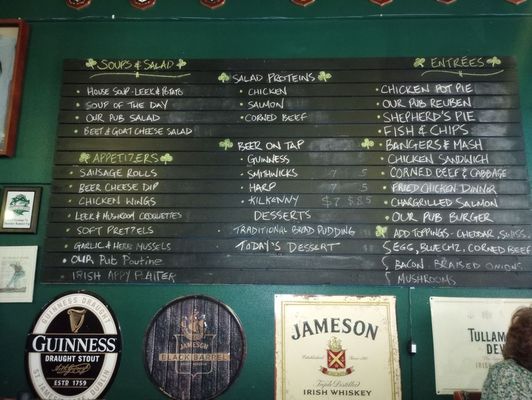 SOUPS & SALAD
HOUSE SOUP-LEEK & POTATO
SOUP OF THE DAY
OUR PUB SALAD
BEET & GOAT CHEESE SALAD
APPETIZERS
SAUSAGE ROLLS
BEER CHEESE DIP
CHICKEN WINGS
LEEK & MUSHROOM CROQUETTES
SOFT PRETZELS
GARLIC & HERB MUSSELS
OUR PUB POUTINE
IRISH APPY PLATTER
SALAD PROTEINS
CHICKEN
SALMON
CORNED BEEF
BEER ON TAP
GUINNESS
SMITHWICKS 7 5
HARP 7 5
KILKENNY $7 $8.5
DESSERTS
TRADITIONAL BREAD PUDDING
TODAY'S DESSERT
ENTRÉES
CHICKEN POT PIE
OUR PUB REUBEN
SHEPHERD'S PIE
FISH & CHIPS
BANGERS & MASH
CHICKEN SANDWICH
CORNED BEEF & CABBAGE
FRIED CHICKEN DINNER
CHARGRILLED SALMON
OUR PUB BURGER
ADD TOPPINGS - CHEDDAR, SWISS,
EGG, BLUE CHZ, CORNED BEEF
BACON BRAISED ONIONS
MUSHROOMS
GUINNESS
DRAUGHT STOUT
ESTD 1759
JAMESON
BLACK BARREL
JAMESON
Triple Distilled
IRISH WHISKEY
TULLAM
DEW